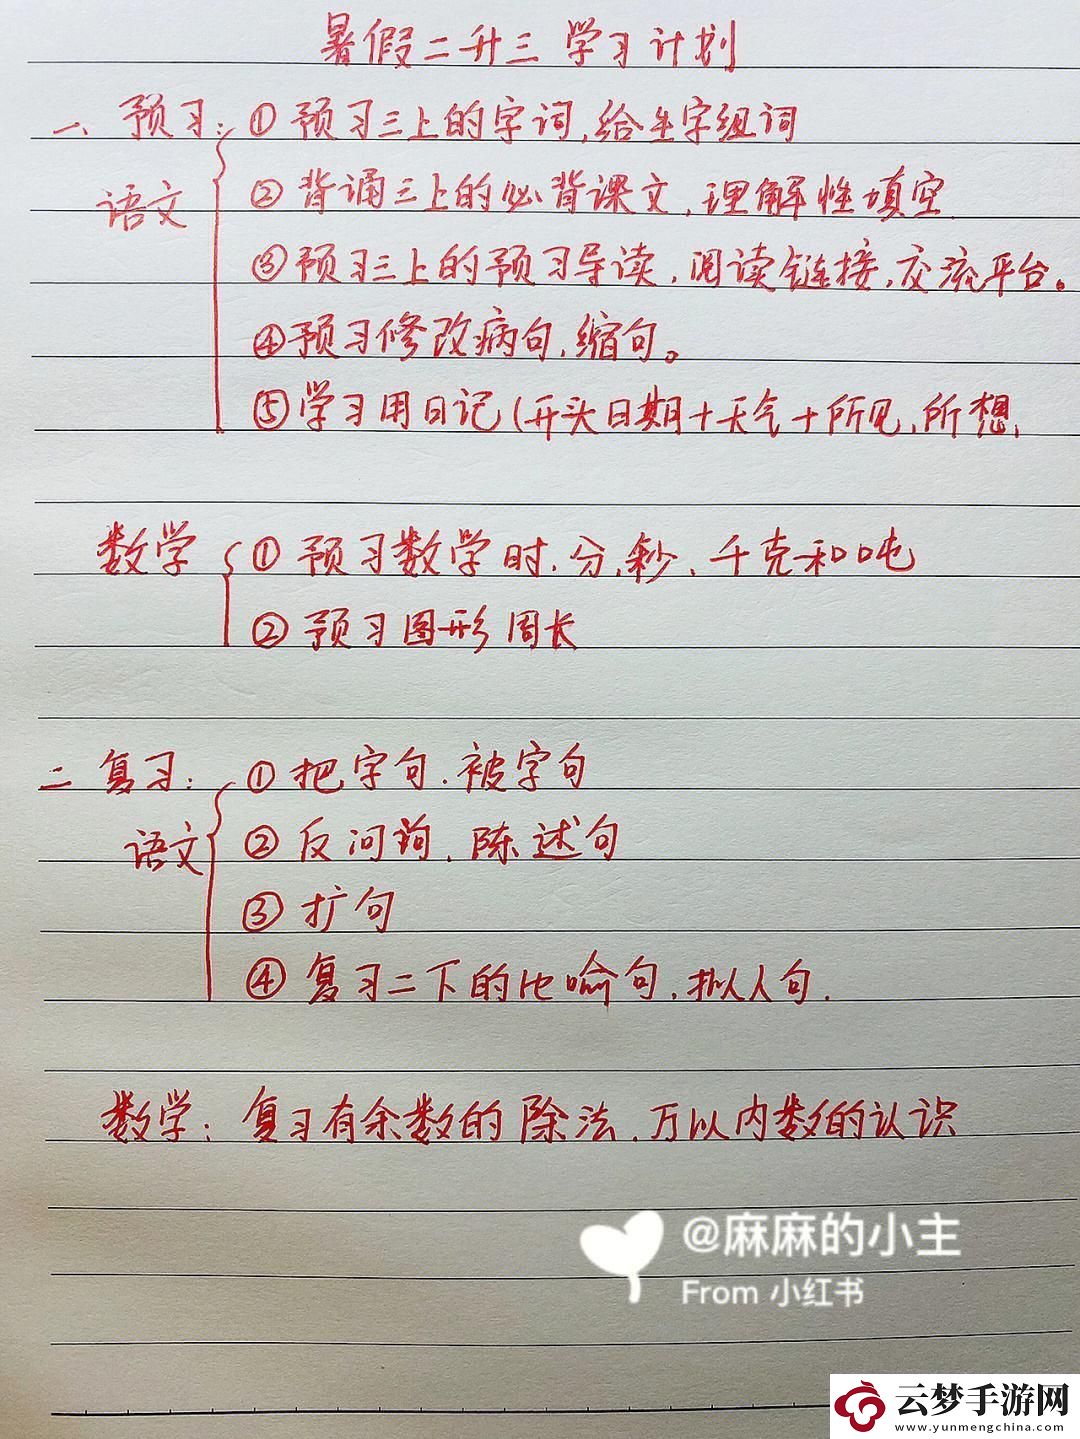 暑假二升三 学习计划
一、预习: ①预习三上的字词,给生字组词
语文 ②背诵三上的必背课文,理解性填空
③预习三上的预习导读,阅读链接,交流平台。
④预习修改病句,缩句。
⑤学习用日记(开头日期+天气+所见,所想,
数学 ①预习数学时、分、秒、千克和吨
②预习图形周长
二 复习: ①把字句、被字句
语文 ②反问句、陈述句
③扩句
④复习二下的比喻句,拟人句.
数学: 复习有余数的除法,万以内数的认识
@麻麻的小主
From 小红书
云梦手游网
www.yunmengchina.com